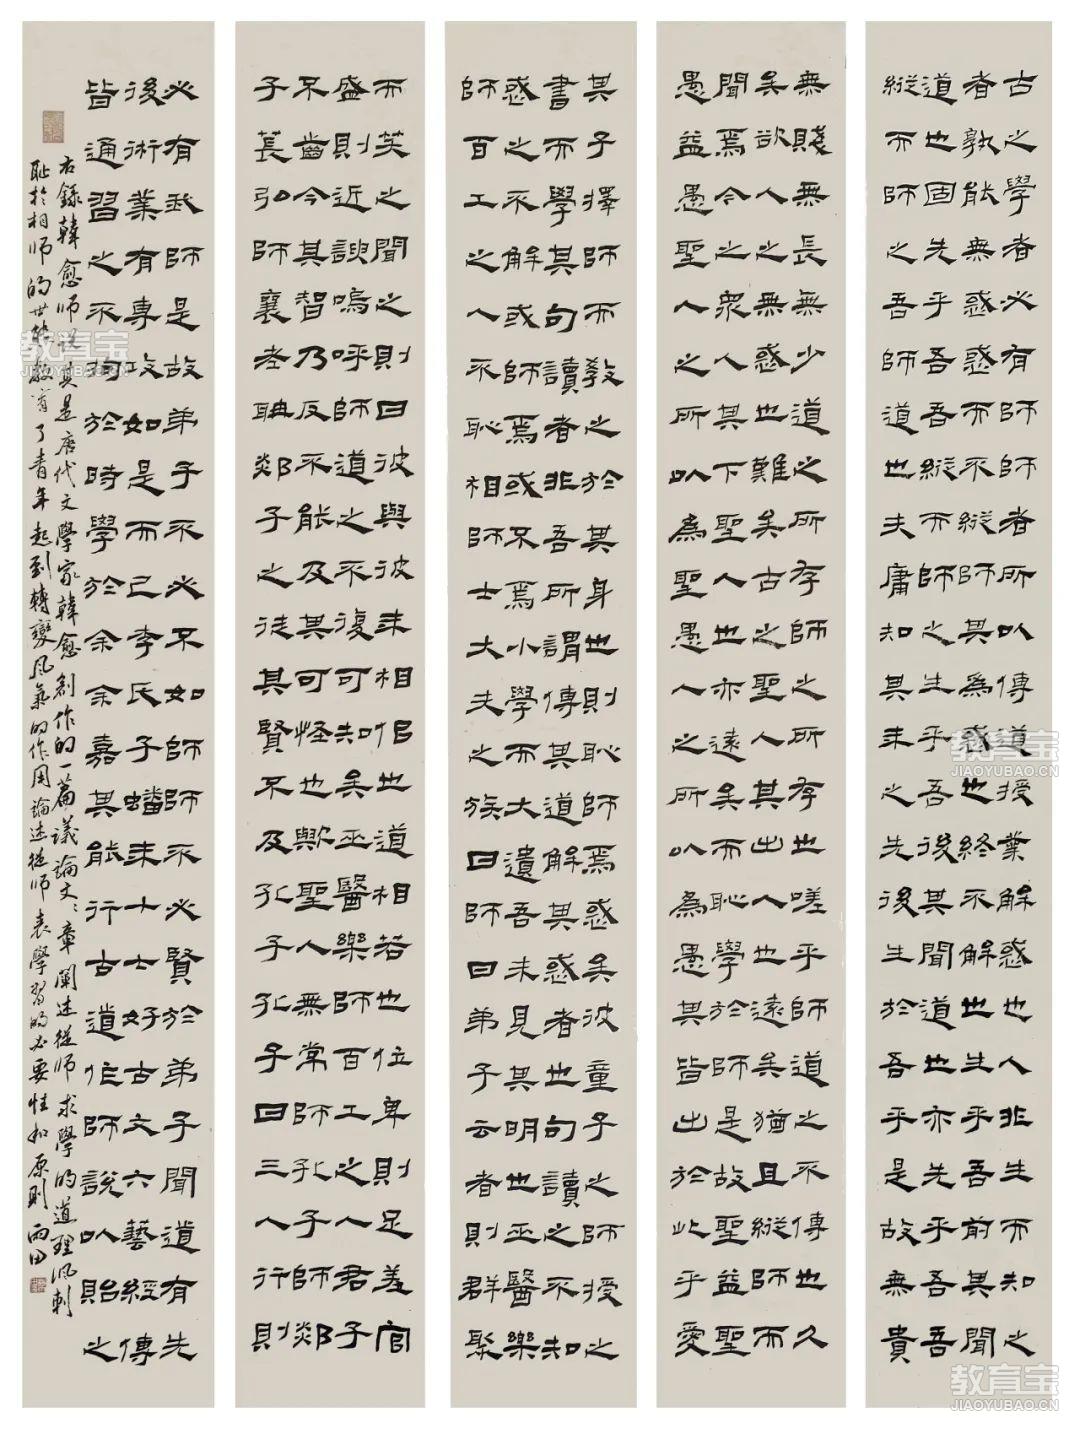 古之學者必有師師者所以傳道授業解惑也人非生而知之
者孰能無惑惑而不縱師其為惑也終不解也生乎吾前其聞
道也固先乎吾吾縱而師之生乎吾後其聞道也亦先乎吾吾
縱而師之吾師道也夫庸知其年之先後生於吾乎是故無貴
無賤無長無少道之所存師之所存也嗟乎師道之不傳也久
矣欲人之無惑也難矣古之聖人其出人也遠矣猶且縱師而
聞焉今之衆人其下聖人也亦遠矣而恥學於師是故聖益聖
愚益愚聖人之所以為聖愚人之所以為愚其皆出於此乎愛
其子擇師而教之於其身也則恥師焉惑矣彼童子之師授之
書而學其句讀者非吾所謂傳其道解其惑者也句讀之不知
惑之不解或師焉或不焉小學而大遺吾未見其明也巫醫樂
師百工之人不恥相師士大夫之族曰師曰弟子云者則群聚
而笑之聞之則曰彼與彼年相佀也道相若也位卑則足羞官
盛則近諛嗚呼師道之不復可知矣巫醫樂師百工之人君子
不齒今其智乃反不能及其可怪也歟聖人無常師孔子師郯
子萇弘師襄老聃郯子之徒其賢不及孔子孔子曰三人行則
必有我師是故弟子不必不如師師不必賢於弟子聞道有先
後術業有專攻如是而已李氏子蟠年十七好古文六藝經傳
皆通習之不拘於時學於余余嘉其能行古道作師說以貽之
右錄韓愈師說其是唐代文學家韓愈創作的一篇議論文〻章闡述從師求學的道理諷刺
恥於相師的世態教育了青年起到轉變風氣的作用論述從師表學習的必要性和原則雨田
教育宝
JIAOYUBAO.CN
教育宝
JIAOYUBAO.CN
教育宝
JIAOYUBAO.CN